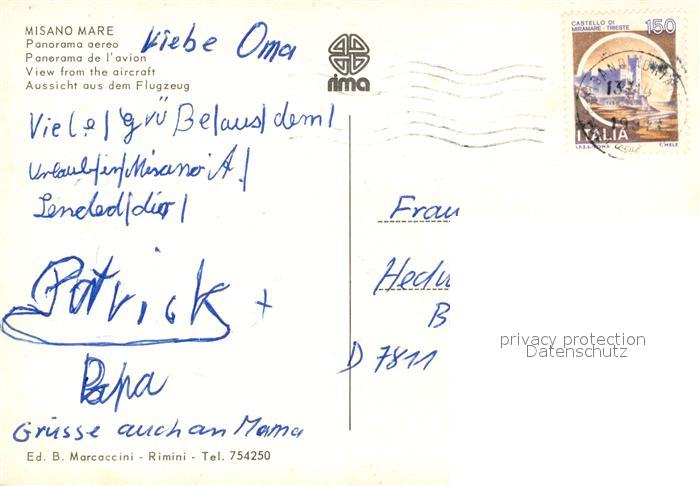 MISANO MARE
Panorama aereo
Panorama de l'avion
View from the aircraft
Aussicht aus dem Flugzeug
Liebe Oma
Viele/grüße/aus/dem/
Urlaub/in/Misano A/
Sended/dir/
Patrick +
Papa
Grüsse auch an Mama
Ed. B. Marcaccini - Rimini - Tel. 754250
rima
CASTELLO DI
MIRAMARE - TRIESTE
150
ITALIA
I.P.Z.S. ROMA
E. MELE
Frau
Hedw
B
D 7811
privacy protection
Datenschutz